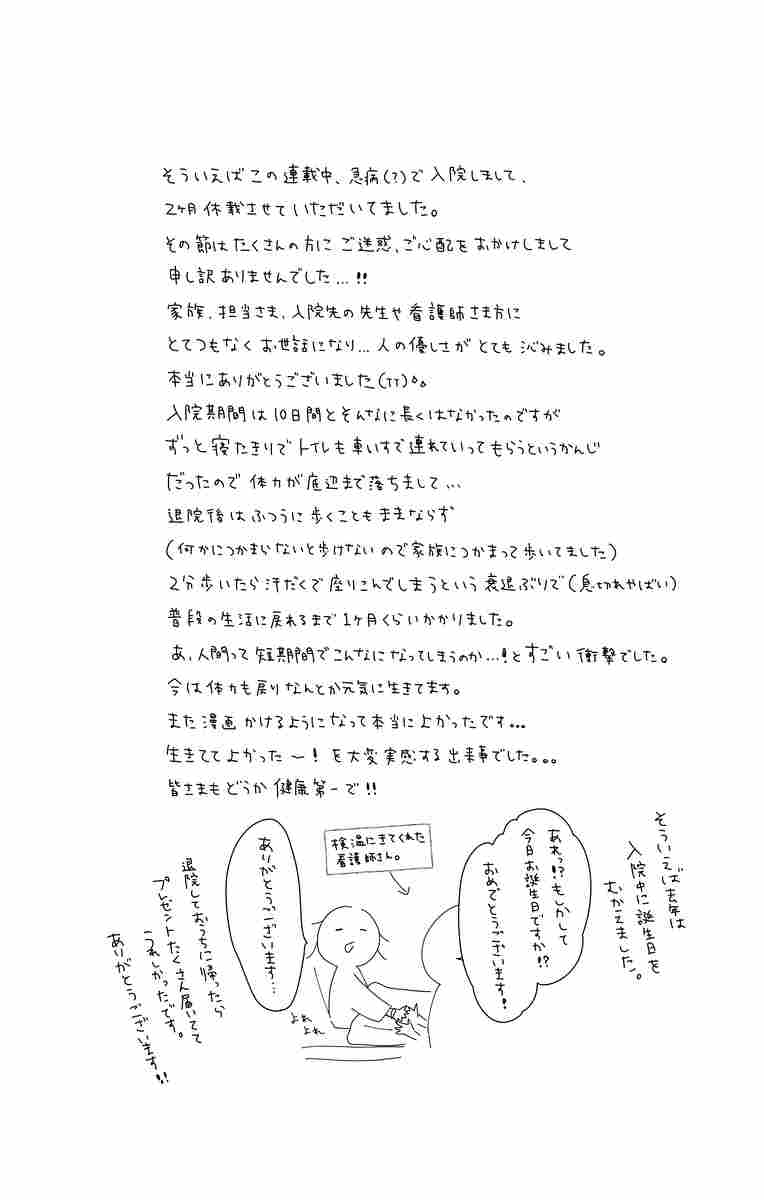 そういえばこの連載中、急病(?)で入院しまして、
2ヶ月休載させていただいてました。
その節はたくさんの方にご迷惑、ご心配をおかけしまして
申し訳ありませんでした…!!
家族、担当さま、入院先の先生や看護師さま方に
とてつもなくお世話になり…人の優しさがとても沁みました。
本当にありがとうございました(TT)。。
入院期間は10日間とそんなに長くはなかったのですが
ずっと寝たきりでトイレも車いすで連れていってもらうというかんじ
だったので体力が底辺まで落ちまして…
退院後はふつうに歩くこともままならず
(何かにつかまらないと歩けないので家族につかまって歩いてました)
2分歩いたら汗だくで座りこんでしまうという衰退ぶりで(息切れやばい)
普段の生活に戻れるまで1ヶ月くらいかかりました。
あ、人間って短期間でこんなになってしまうのか…!とすごい衝撃でした。
今は体力も戻りなんとか元気に生きてます。
また漫画かけるようになって本当に上かったです…
生きてて上かった〜!を大変実感する出来事でした。。。
皆さまもどうか健康第一で!!
そういえば去年は
入院中に誕生日を
むかえました。
あれっ!?もしかして
今日お誕生日ですか!?
おめでとうございます!
検温にきてくれた
看護師さん。
ありがとうございます…
よれ
よれ
退院しておうちに帰ったら
プレゼントたくさん届いてて
うれしかったです。
ありがとうございます!!